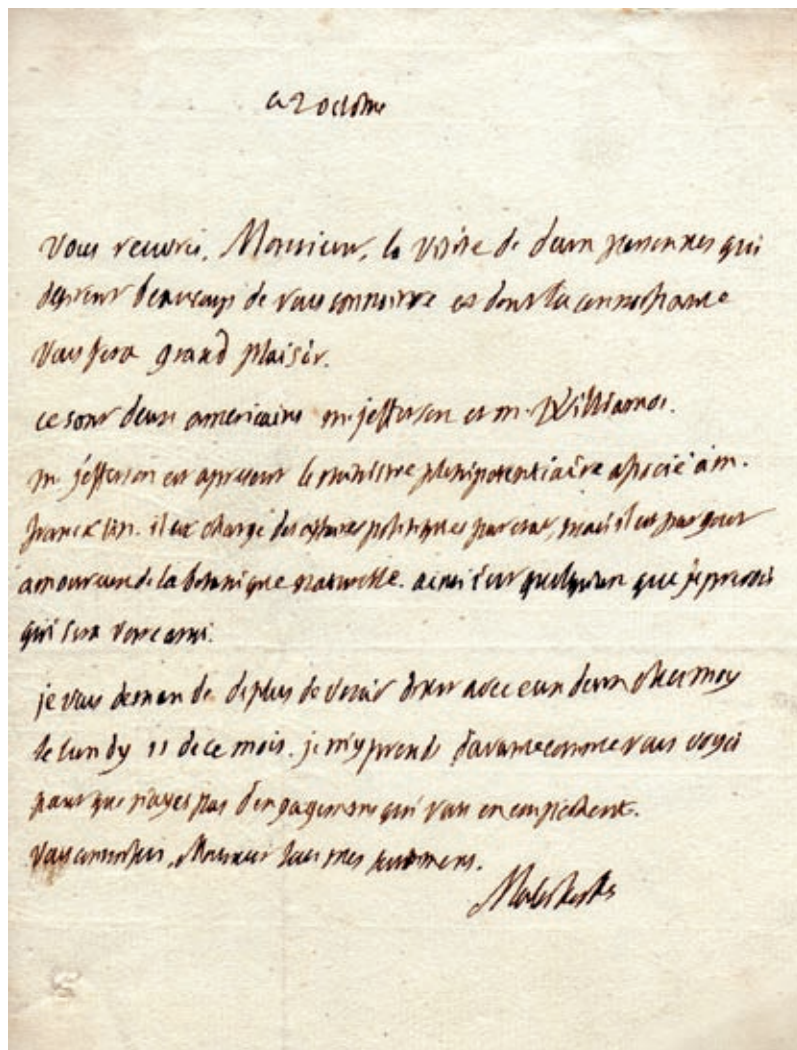 ce 2 octobre
vous recevrés, Monsieur, la visite de deux personnes qui
desirent beaucoup de vous connoitre et dont la connoissance
vous fera grand plaisir.
ce sont deux americains mr. jefferson et m. Williamos.
mr jefferson est apresent le ministre plenipotentiaire associé a m.
francklin. il est chargé des affaires politiques par etat, mais il est par gout
amoureux de la botanique naturelle. ainsi c'est quelqu'un que je prevois
qui sera votre ami.
je vous demande deplus de venir diner avec eux deux chez moy
le lundy 11 de ce mois. je m'y prends d'avance comme vous voyés
pour que n'ayes pas d'engagemens qui vous en empechent.
vous connoissés, Monsieur tous mes sentimens.
Malesherbes